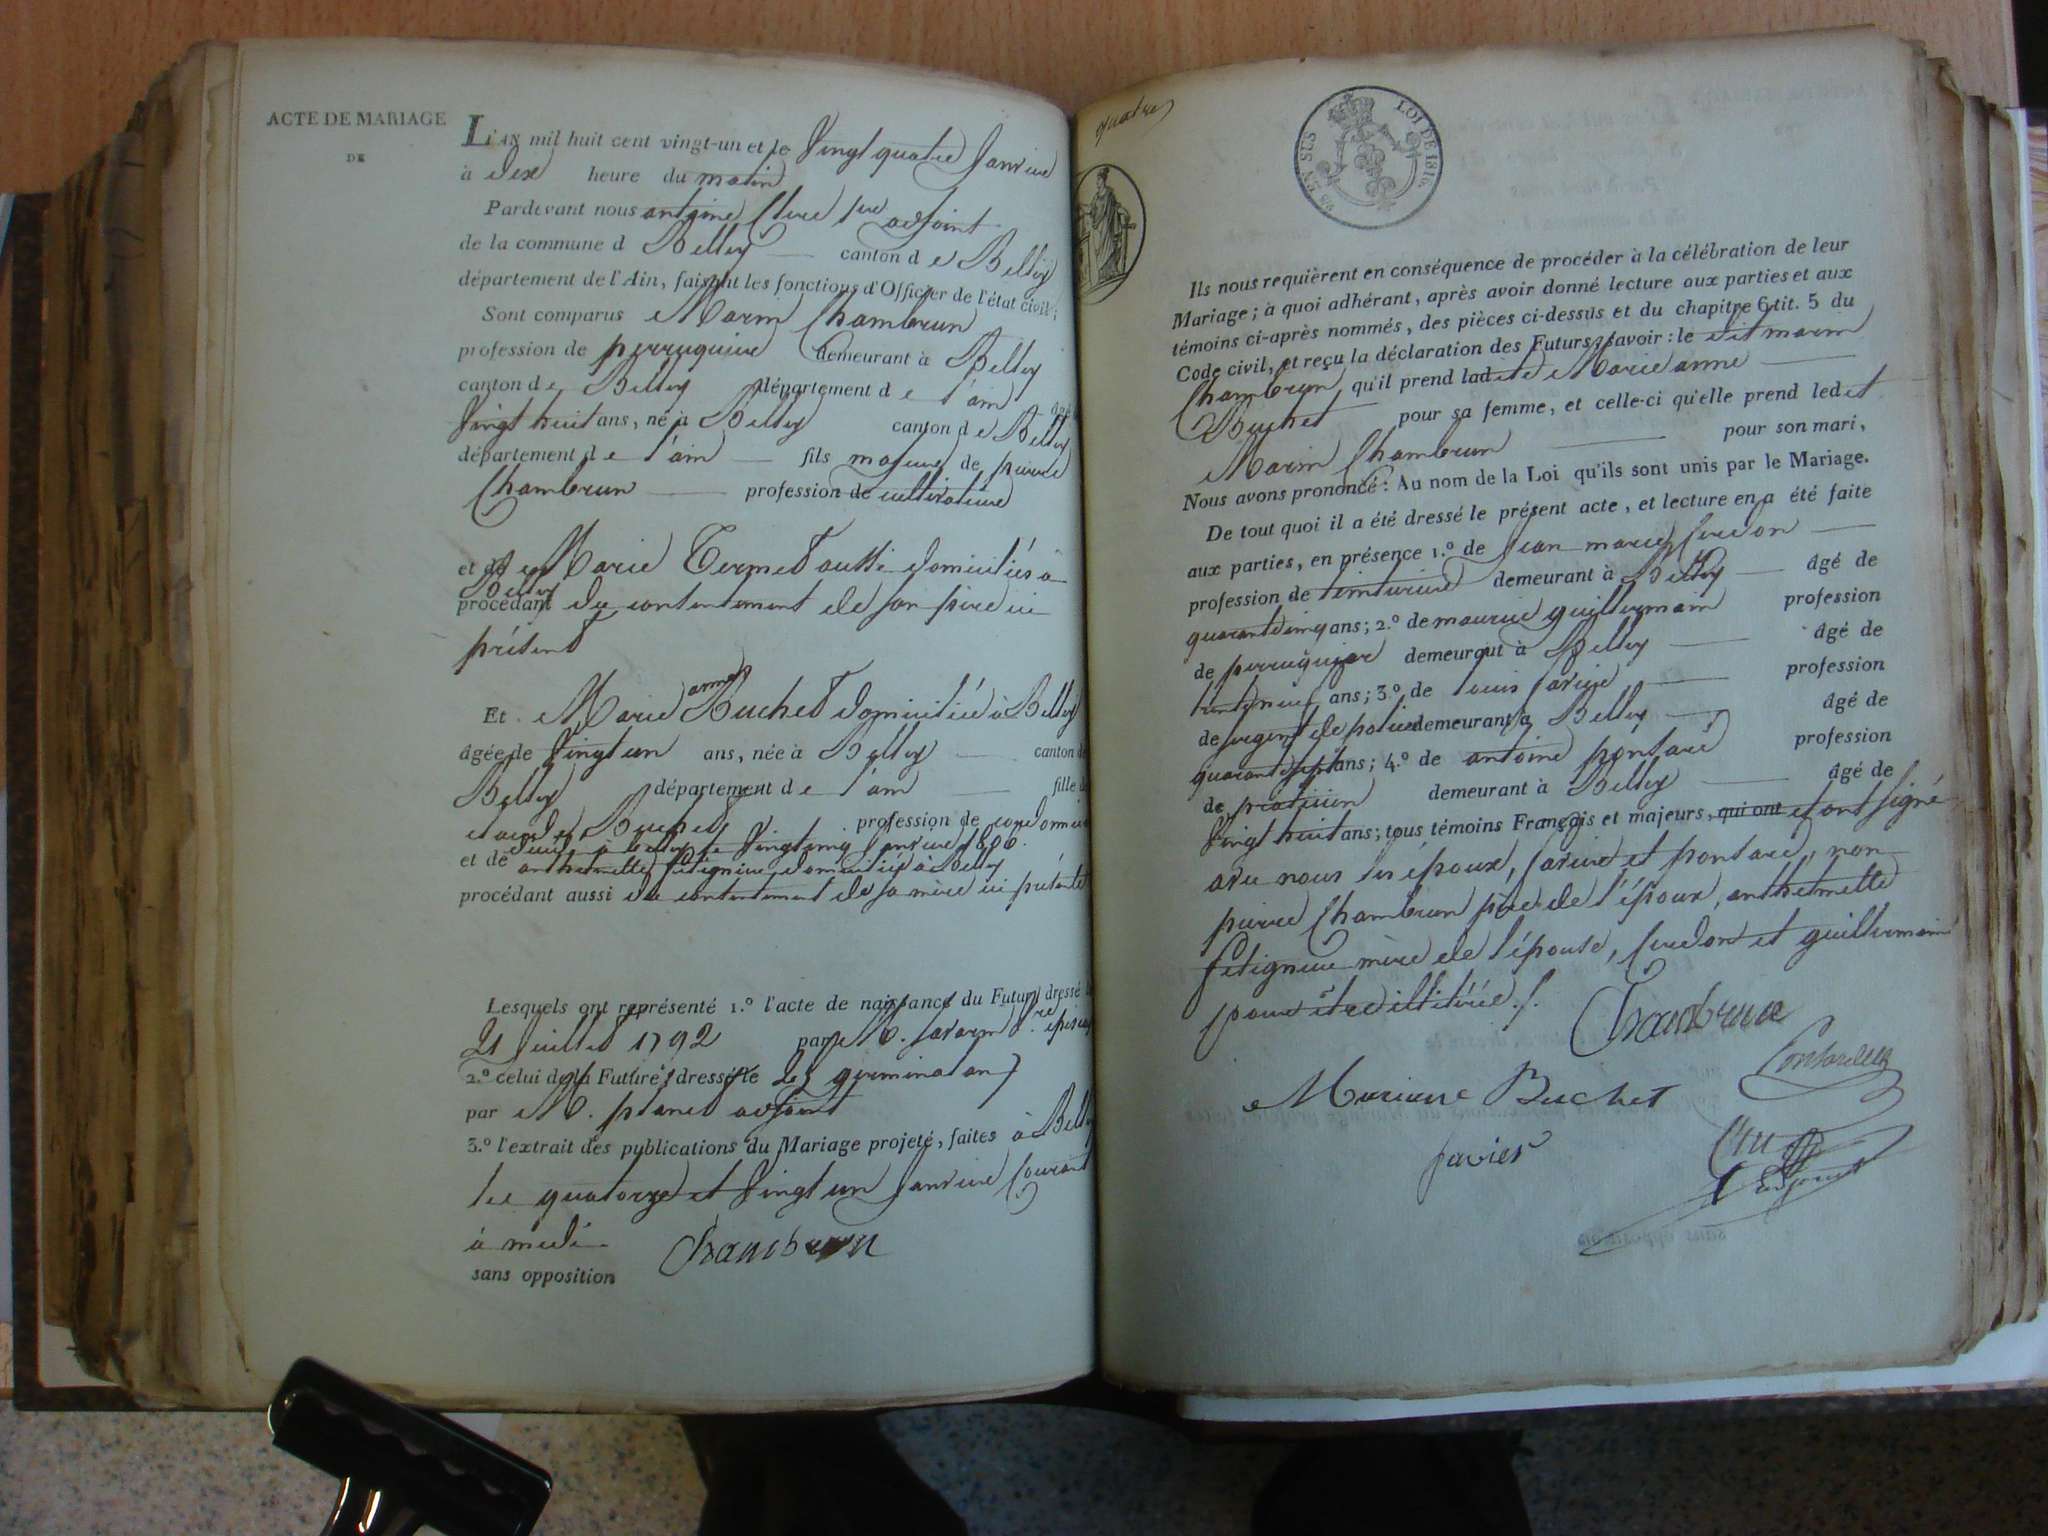 ACTE DE MARIAGE
DE
L'AN mil huit cent vingt-un et le Vingt quatre Janvier
à dix heure du matin
Pardevant nous antoine Clerc 1er adjoint
de la commune d Belley canton d e Belley
département de l'Ain, faisant les fonctions d'Officier de l'état civil;
Sont comparus Marin Chambrun
profession de perruquier demeurant à Belley
canton d e Belley département d e l'ain âgé d
Vingt huit ans, né à Belley canton d e Belley
département d e l'ain fils majeur de pierre
Chambrun profession de cultivateur
et de Marie Termet aussi domiciliés à
Belley
procédant du contentement de son père ici
présent
Et Marie anne Buchet domiciliée à Belley
âgée de Vingt un ans, née à Belley canton de
Belley département d e l'ain fille de
Buchet profession de cordonnier
décédé à belley le Vingt cinq Janvier 1806.
et de anthelmette fétignieu domiciliée à Belley
procédant aussi du contentement de sa mère ici présente
Lesquels ont représenté 1.º l'acte de naissance du Futur dressé le
21 Juillet 1792 par M.
2.º celui de la Future dressé le germinal an 7
par M. adjoint
3.º l'extrait des publications du Mariage projeté, faites à Belley
les quatorze et Vingt un Janvier Courant
à midi
sans opposition Chambrun
quatre
EN SUS LOI DE 1816.
Ils nous requièrent en conséquence de procéder à la célébration de leur
Mariage; à quoi adhérant, après avoir donné lecture aux parties et aux
témoins ci-après nommés, des pièces ci-dessus et du chapitre 6 tit. 5 du
Code civil, et reçu la déclaration des Futurs, savoir: le dit marin
Chambrun qu'il prend ladite Marie anne
Buchet pour sa femme, et celle-ci qu'elle prend ledit
Marin Chambrun pour son mari,
Nous avons prononcé: Au nom de la Loi qu'ils sont unis par le Mariage.
De tout quoi il a été dressé le présent acte, et lecture en a été faite
aux parties, en présence 1.º de Jean marie
profession de teinturier demeurant à Belley âgé de
quarante cinq ans; 2.º de maurice guillermain profession
de perruquier demeurant à Belley âgé de
trente neuf ans; 3.º de louis favier profession
de sergent de police demeurant à Belley âgé de
quarante sept ans; 4.º de antoine pontard profession
de praticien demeurant à Belley âgé de
Vingt huit ans; tous témoins Français et majeurs, qui ont et ont signé
avec nous les époux, favier et pontard, non
pierre Chambrun père de l'époux, anthelmette
fétignieu mère de l'épouse, et guillermain
pour être illitérés./.
Chambrun
Marianne Buchet
favier
Clerc
adjoint